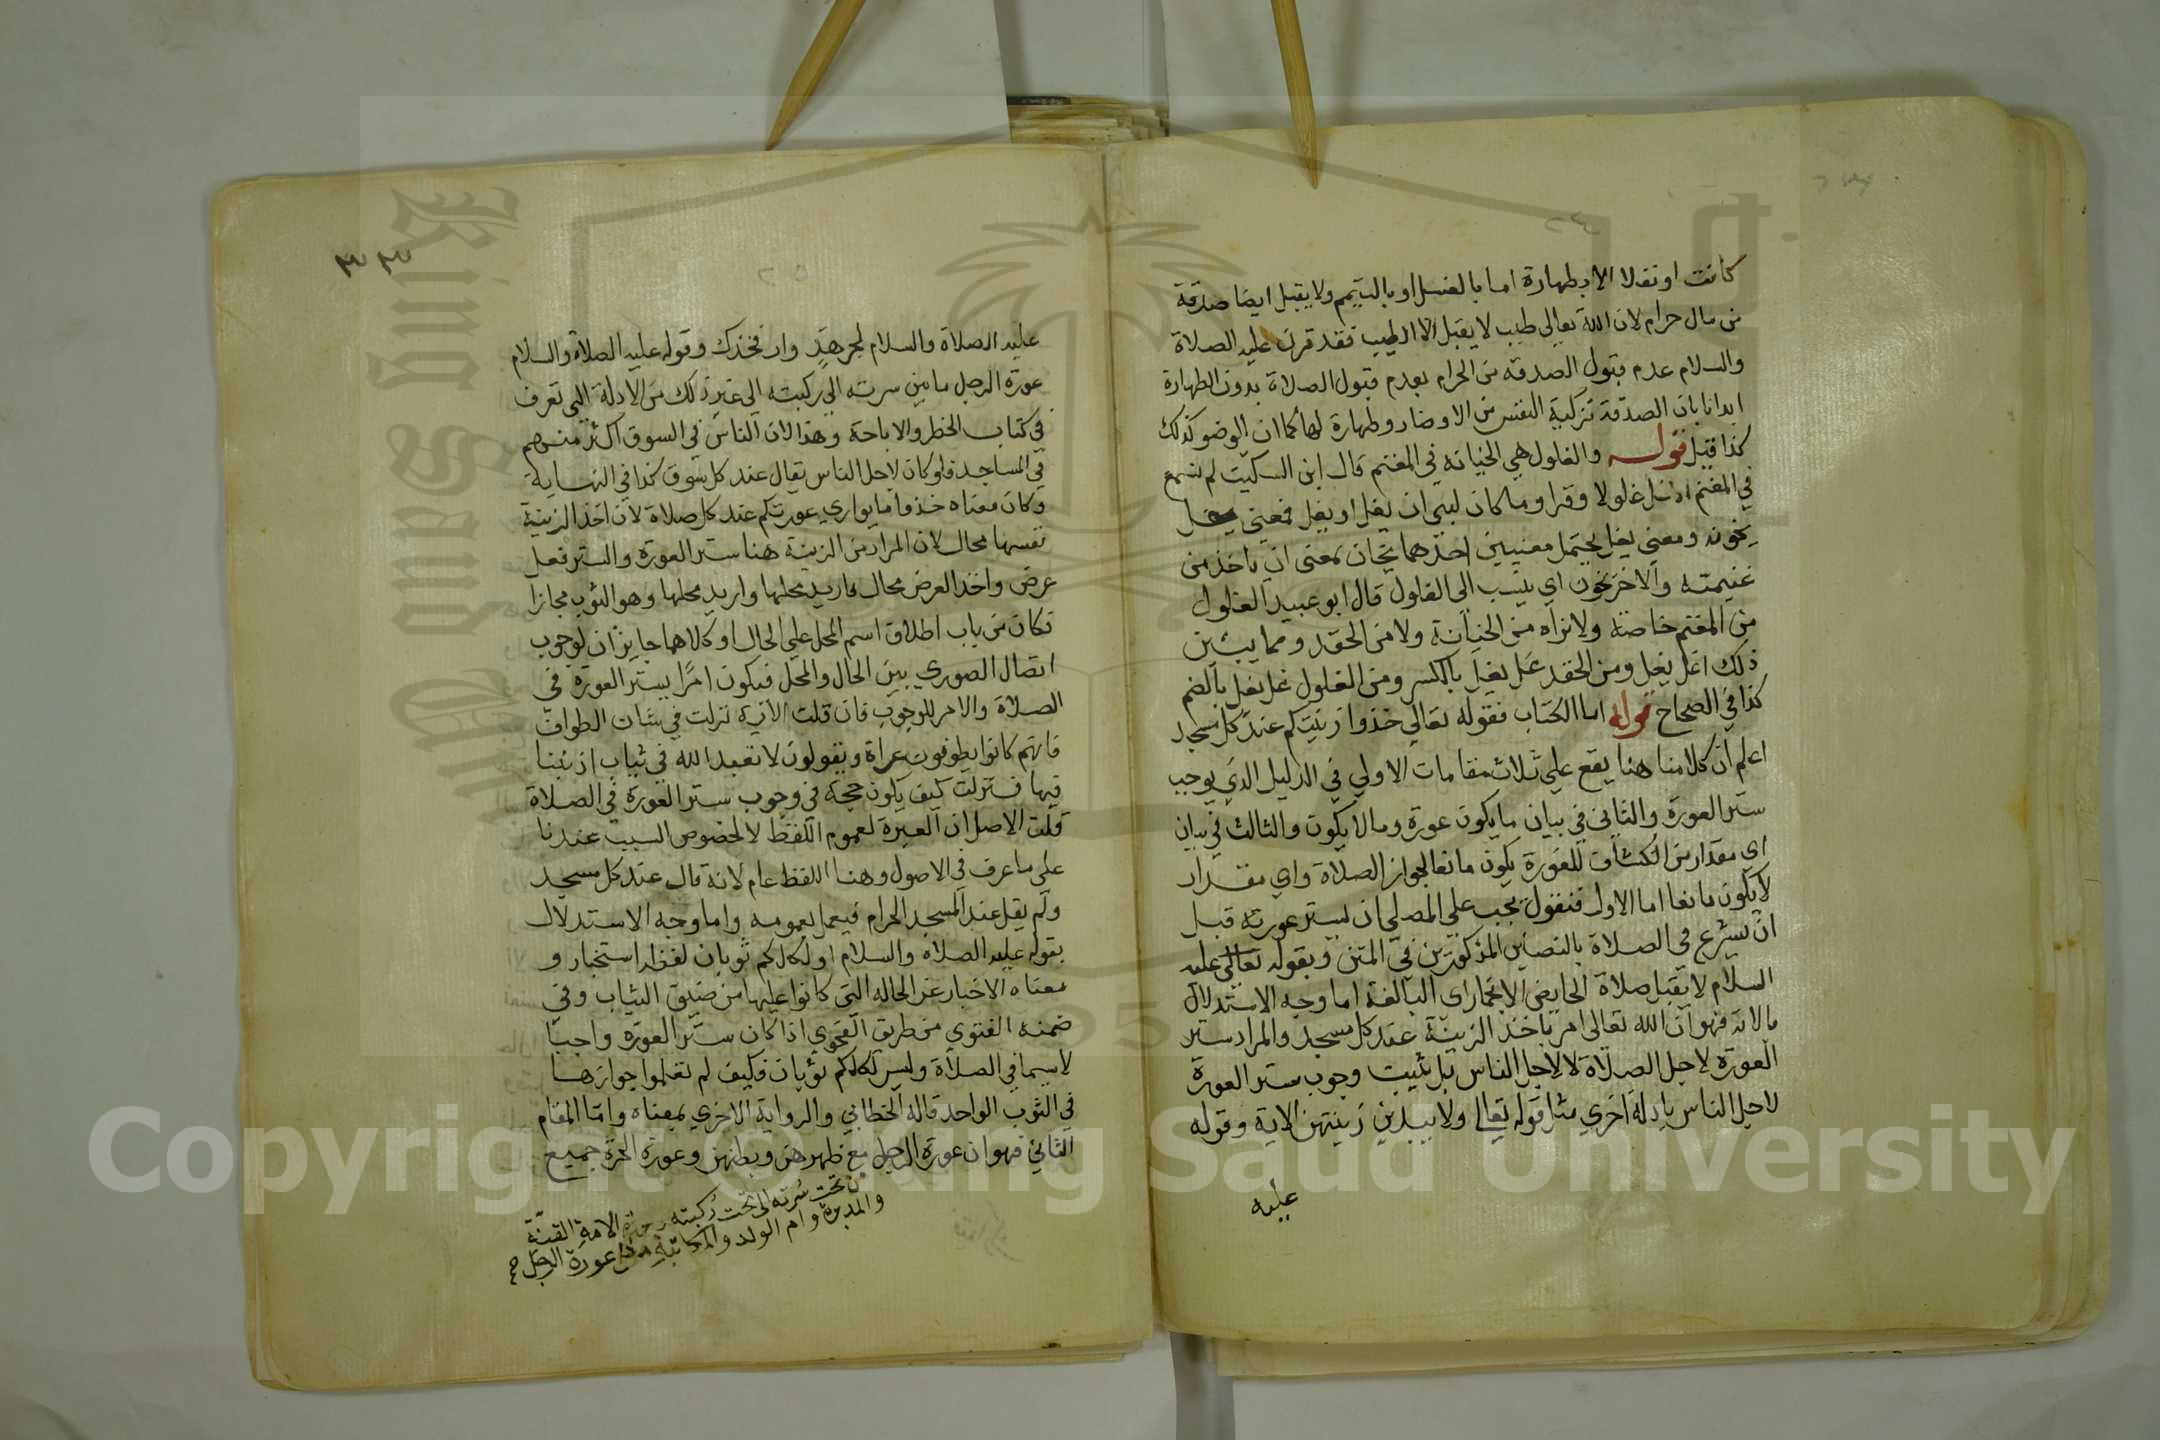 كانت او نفلا الا بطهارة اما بالغسل او بالتيمم ولا يقبل ايضا صدقة
من مال حرام لان الله تعالى طيب لا يقبل الا الطيب فقد قرن عليه الصلاة
والسلام عدم قبول الصدقه من الحرام بعدم قبول الصلاة بدون الطهارة
ايذانا بان الصدقة تزكية النفس من الاوضار وطهارة لها كما ان الوضو كذلك
كذا قيل قوله والغلول هي الخيانه في المغنم قال ابن السكيت لم نسمع
في المغنم الا غل غلولا وقرا وما كان لنبي ان يغل او يغل فمعنى يغل
يخونه ومعنى يغل يحتمل معنيين احدهما يخان بمعنى ان ياخذ من
غنيمته والاخر يخون اي ينسب الى الغلول قال ابو عبيد الغلول
من المغنم خاصة ولا نراه من الخيانة ولا من الحقد ومما يبين
ذلك اغل يغل ومن الحقد غل يغل بالكسر ومن الغلول غل يغل بالضم
كذا في الصحاح قوله اما الكتاب فقوله تعالى خذوا زينتكم عند كل مسجد
اعلم ان كلامنا هنا يقع على ثلاث مقامات الاولى في الدليل الذي يوجب
ستر العورة والثاني في بيان ما يكون عورة وما لا يكون والثالث في بيان
اي مقدار من انكشاف للعورة يكون مانعا لجواز الصلاة واي مقدار
لا يكون مانعا اما الاول فنقول يجب على المصلي ان يستر عورته قبل
ان يشرع في الصلاة بالنصين المذكورين في المتن وبقوله تعالى عليه
السلام لا يقبل صلاة الحايض الا بخمار اي البالغة اما وجه الاستدلال
بالاية فهو ان الله تعالى امر باخذ الزينة عند كل مسجد والمراد ستر
العورة لاجل الصلاة لا لاجل الناس بل ثبت وجوب ستر العورة
لاجل الناس بادلة اخرى مثل قوله تعالى ولا يبدين زينتهن الاية وقوله
عليه
٣٣
٢٥
عليه الصلاة والسلام لجرهد وار فخذك وقوله عليه الصلاة والسلام
عورة الرجل ما بين سرته الى ركبته الى غير ذلك من الادلة التي تعرف
في كتاب الحظر والاباحة وهذا لان الناس في السوق اكثر منهم
في المساجد فلو كان لاجل الناس يقال عند كل سوق كذا في النهاية
وكان معناه خذوا ما يواري عورتكم عند كل صلاة لان اخذ الزينة
نفسها محال لان المراد من الزينة هنا ستر العورة والستر فعل
عرض واخذ العرض محال فاريد محلها واريد محلها وهو الثوب مجازا
فكان من باب اطلاق اسم المحل على الحال او كلاهما جايزان لوجوب
اتصال الصوري بين الحال والمحل فيكون امرا بستر العورة في
الصلاة والامر للوجوب فان قلت الاية نزلت في شان الطواف
فانهم كانوا يطوفون عراة ويقولون لا نعبد الله في ثياب اذنبنا
فيها فنزلت كيف يكون حجة في وجوب ستر العورة في الصلاة
قلت الاصل ان العبرة لعموم اللفظ لا لخصوص السبب عندنا
على ما عرف في الاصول وهنا اللفظ عام لانه قال عند كل مسجد
ولم يقل عند المسجد الحرام فيعمل بعمومه واما وجه الاستدلال
بقوله عليه الصلاة والسلام او لكلكم ثوبان لفظه استخبار و
معناه الاخبار عن الحاله التي كانوا عليها من ضيق الثياب وفي
ضمنه الفتوى من طريق الفحوى اذا كان ستر العورة واجبا
لاسيما في الصلاة وليس لكلكم ثوبان فكيف لم تعلموا جوازها
في الثوب الواحد قاله الخطابي والرواية الاخرى بمعناه واما المقام
الثاني فهو ان عورة الرجل مع ظهرهن وبطنهن وعورة الحرة جميع
من تحت سرته الى تحت ركبته الامة القنة
والمدبرة وام الولد والمكاتبة عورة الرجل
Copyright © King Saud University